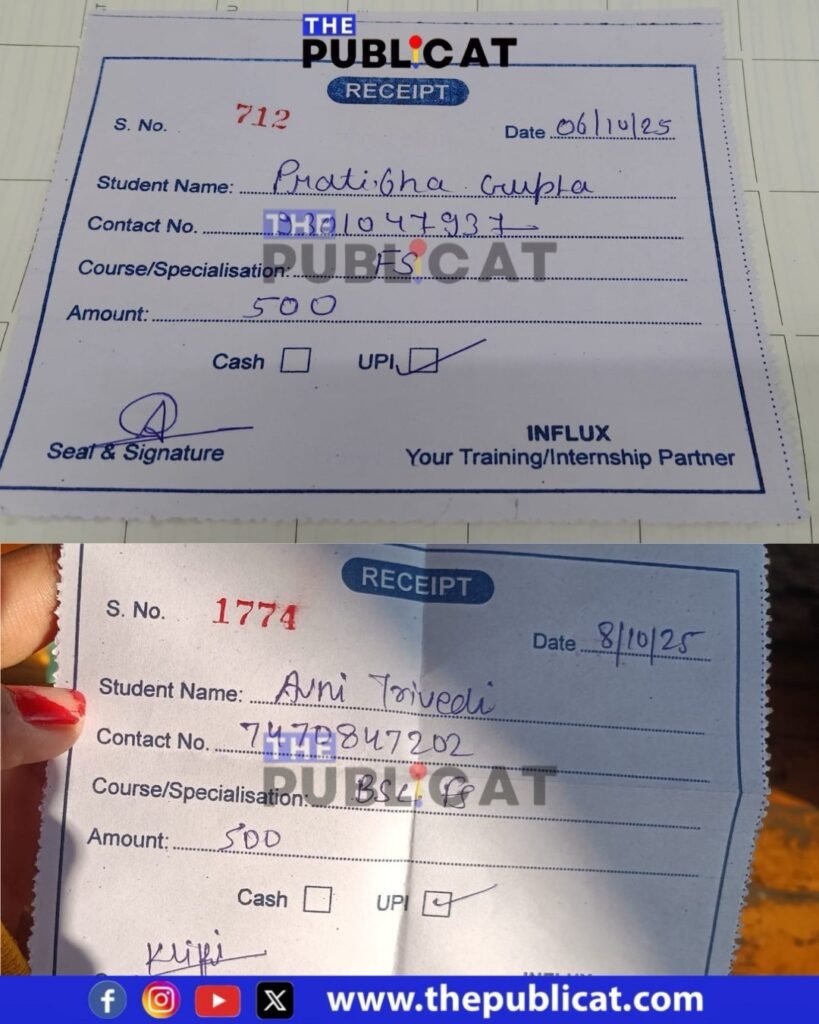 THE
PUBLICAT
RECEIPT
S. No. 712
Date 06/10/25
Student Name: Pratibha Gupta
Contact No. 9301047937
THE
PUBLICAT
Course/Specialisation: FS
Amount: 500
Cash UPI
Seal & Signature
INFLUX
Your Training/Internship Partner
RECEIPT
S. No. 1774
Date 8/10/25
Student Name: Avni Trivedi
Contact No. 7470847202
THE
PUBLICAT
Course/Specialisation: BSc. FS
Amount: 500
Cash UPI
www.thepublicat.com